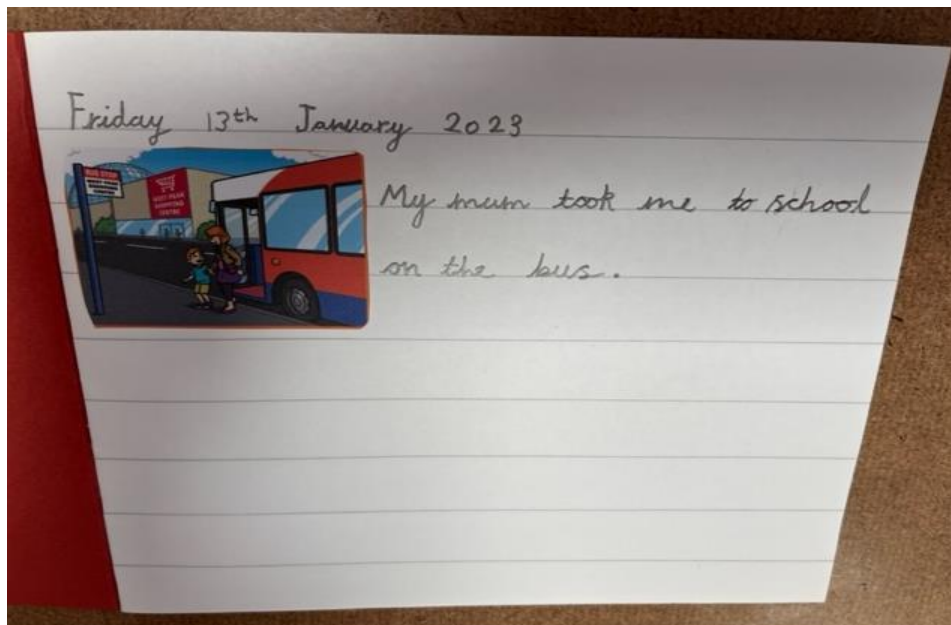 Friday 13th January 2023
BUS STOP
My mum took me to school
on the bus.